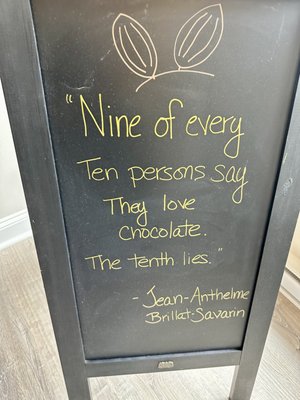 "Nine of every
Ten persons say
They love
chocolate.
The tenth lies."
- Jean-Anthelme
Brillat-Savarin